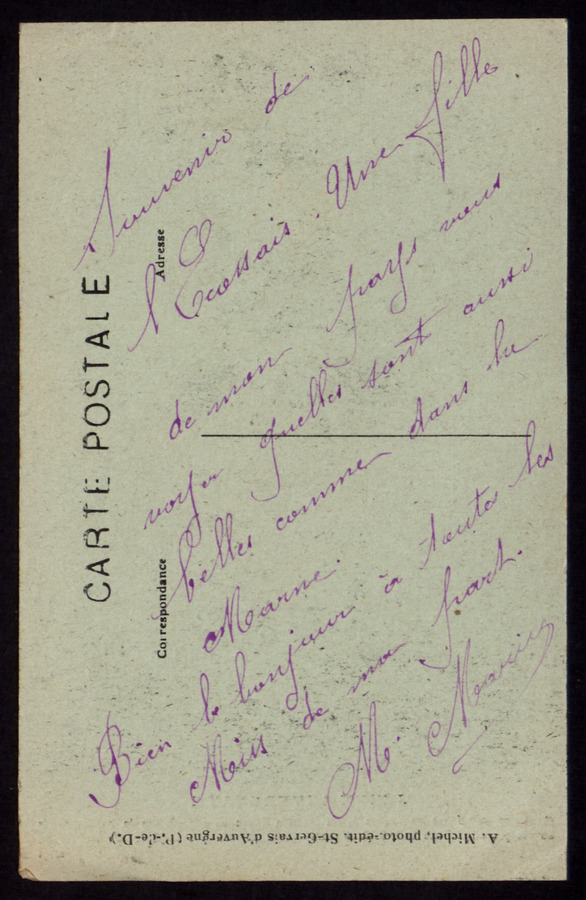 CARTE POSTALE
Correspondance
Adresse
Souvenir de
l'Ecossais. Une fille
de mon pays vous
voyer quelles sont aussi
belles comme dans la
Marne.
Bien le bonjour à toute les
Miss de ma part.
M.
A. Michel, photo.-édit. St-Gervais d'Auvergne (P.-de-D.)